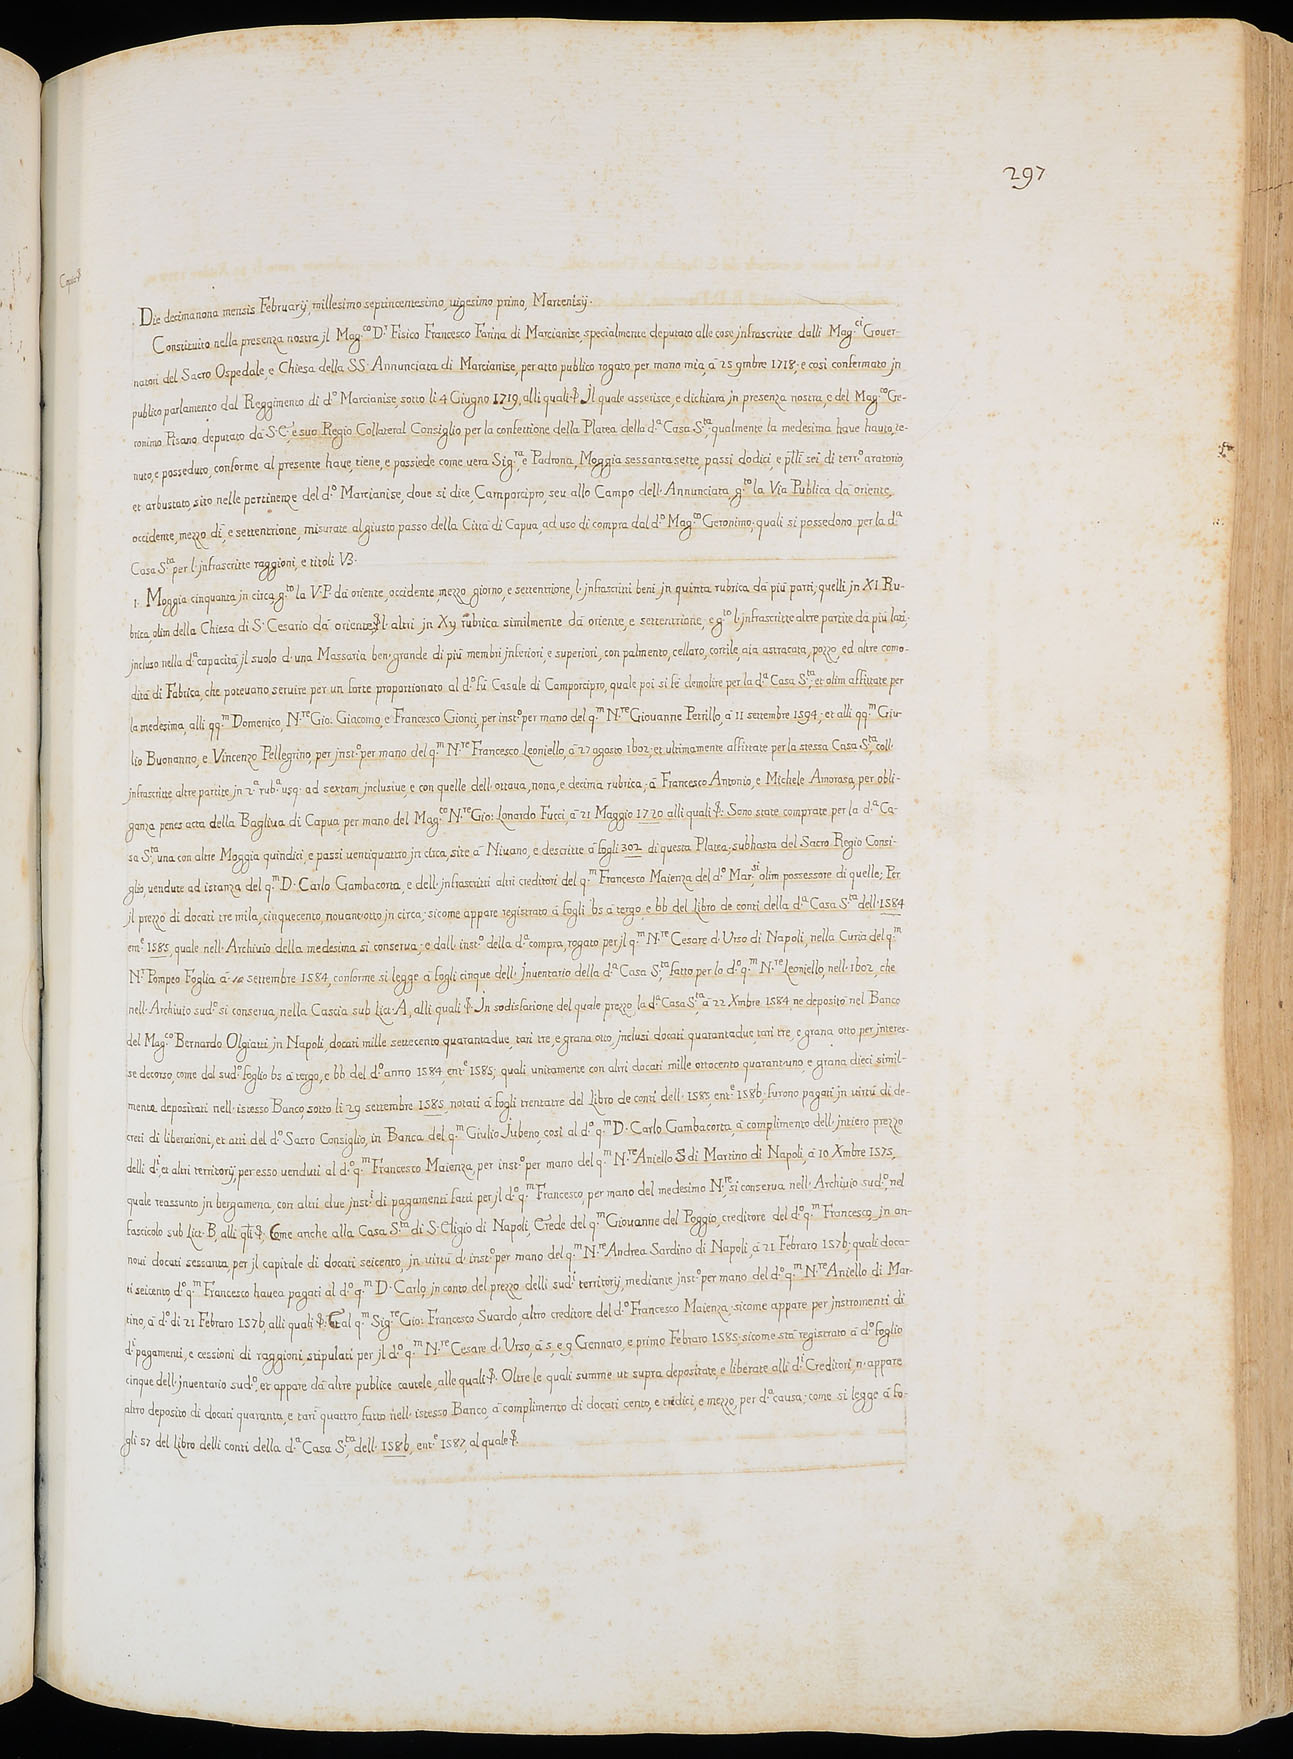 297
Die decimanona mensis Februarÿ, millesimo septincentesimo, uigesimo primo, Marcenisÿ.
Constituito nella presenza nostra jl Mag.co D.r Fisico Francesco Farina di Marcianise, specialmente deputato alle cose jnfrascritte dalli Mag.ci Gouer-
natori del Sacro Ospedale, e Chiesa della SS. Annunciata di Marcianise, per atto publico rogato per mano mia, à 25 9mbre 1718; e così confermato jn
publico parlamento dal Reggimento di d.o Marcianise, sotto li 4 Giugno 1719, alli quali. Jl quale asserisce, e dichiara jn presenza nostra, e del Mag.co Ge-
ronimo Pisano, deputato da S.C., e suo Regio Collateral Consiglio per la confettione della Platea della d.a Casa S.ta, qualmente la medesima haue hauto, te-
nuto, e posseduto, conforme al presente haue tiene, e possiede come uera Sig.ra e Padrona, Moggia sessanta sette, passi dodici, e sei di terr.o aratorio,
et arbustato, sito nelle pertinenze del d.o Marcianise, doue si dice, Camporcipro, seu allo Campo dell'Annunciata, g.to la Via Publica da oriente,
occidente, mezzo dì, e settentrione, misurate al giusto passo della Città di Capua, ad uso di compra dal d.o Mag.co Geronimo; quali si possedono per la d.a
Casa S.ta per l'jnfrascritte raggioni, e titoli V3.
1. Moggia cinquanta jn circa, g.to la V.P. da oriente, occidente, mezzo giorno, e settentrione, l'jnfrascritti beni jn quinta rubrica da più parti; quelli jn XI Ru-
brica, olim della Chiesa di S. Cesario da oriente, l'altri jn Xÿ rubrica similmente da oriente, e settentrione, e g.to l'jnfrascritte altre partite da più lati;
jncluso nella d.a capacità, jl suolo d'una Massaria ben grande di più membri jnferiori, e superiori, con palmento, cellaro, cortile, aia astracata, pozzo, ed altre como-
dità di Fabrica, che poteuano seruire per un forte proportionato al d.o fù Casale di Camporcipro, quale poi si fè demolire per la d.a Casa S.ta; et olim affittate per
la medesima, alli qq.m Domenico, N.re Gio: Giacomo, e Francesco Gionti, per inst.o per mano del q.m N.re Giouanne Petrillo, à 11 settembre 1594; et alli qq.m Giu-
lio Buonanno, e Vincenzo Pellegrino, per jnst.o per mano del q.m N.re Francesco Leoniello, à 27 agosto 1602; et ultimamente affittate per la stessa Casa S.ta, coll'
jnfrascritte altre partite, jn 2.a rub.a usq. ad sextam jnclusiue, e con quelle dell'ottaua, nona, e decima rubrica; à Francesco Antonio, e Michele Amoroso, per obli-
ganza penes acta della Bagliua di Capua, per mano del Mag.co N.re Gio: Lonardo Fucci, à 21 Maggio 1720 alli quali. Sono state comprate per la d.a Ca-
sa S.ta, una con altre Moggia quindici, e passi uentiquattro jn circa, site à Niuano, e descritte à fogli 302 di questa Platea; subhasta del Sacro Regio Consi-
glio, uendute ad istanza del q.m D. Carlo Gambacorta, e dell'jnfrascritti altri creditori del q.m Francesco Maienza del d.o Mar.si olim possessore di quelle; Per
jl prezzo di docati tre mila, cinquecento, nouantotto jn circa; sicome appare registrato à fogli 65 à tergo, e 66 del Libro de conti della d.a Casa S.ta dell'1584
ent.e 1585, quale nell'Archiuio della medesima si conserua; e dall'inst.o della d.a compra, rogato per jl q.m N.re Cesare d'Urso di Napoli, nella Curia del q.m
N.r Pompeo Foglia à 10 settembre 1584, conforme si legge à fogli cinque dell'jnuentario della d.a Casa S.ta, fatto per lo d.o q.m N.re Leoniello, nell'1602, che
nell'Archiuio sud.o si conserua, nella Cascia sub Litt. A, alli quali. Jn sodisfatione del quale prezzo, la d.a Casa S.ta, à 22 Xmbre 1584, ne depositò nel Banco
del Mag.co Bernardo Olgiatti jn Napoli, docati mille settecento quarantadue, tarì tre, e grana otto, jnclusi docati quarantadue, tarì tre, e grana otto per jnteres-
se decorso, come dal sud.o foglio 65 à tergo, e 66 del d.o anno 1584, ent.e 1585; quali unitamente con altri docati mille ottocento quarantuno, e grana dieci simil-
mente depositati nell'istesso Banco, sotto li 29 settembre 1585, notati à fogli trentatre del Libro de conti dell'1585, ent.e 1586, furono pagati jn uirtù di de-
creti di liberationi, et atti del d.o Sacro Consiglio, in Banca del q.m Giulio Jubeno, così al d.o q.m D. Carlo Gambacorta, à complimento dell'jntiero prezzo
delli d.i, et altri territorÿ, per esso uenduti al d.o q.m Francesco Maienza, per inst.o per mano del q.m N.re Aniello di Martino di Napoli, à 10 Xmbre 1575,
quale reassunto jn bergamena, con altri due jnst.i di pagamenti fatti per jl d.o q.m Francesco, per mano del medesimo N.re, si conserua nell'Archiuio sud.o, nel
fascicolo sub Litt. B, alli. Come anche alla Casa S.ta di S. Eligio di Napoli, Erede del q.m Giouanne del Poggio, creditore del d.o q.m Francesco, jn an-
noui docati sessanta, per jl capitale di docati seicento, jn uirtù d'inst.o per mano del q.m N.re Andrea Sardino di Napoli, à 21 Febraro 1576; quali doca-
ti seicento, d.o q.m Francesco hauea pagati al d.o q.m D. Carlo, jn conto del prezzo delli sud.i territorÿ, mediante jnst.o per mano del d.o q.m N.re Aniello di Mar-
tino, à d.o dì 21 Febraro 1576, alli quali. Et al q.m Sig.re Gio: Francesco Suardo, altro creditore del d.o Francesco Maienza; sicome appare per jnstromenti di
d.i pagamenti, e cessioni di raggioni, stipulati per jl d.o q.m N.re Cesare d'Urso, à 5, e 9 Gennaro, e primo Febraro 1585; sicome stà registrato à d.o foglio
cinque dell'jnuentario sud.o, et appare da altre publice cautele, alle quali. Oltre le quali summe ut supra depositate, e liberate alli d.i Creditori, n'appare
altro deposito di docati quaranta, e tarì quattro, fatto nell'istesso Banco, à complimento di docati cento, e tredici, e mezzo, per d.a causa; come si legge à fo-
gli 57 del Libro delli conti della d.a Casa S.ta, dell'1586, ent.e 1587, al quale.